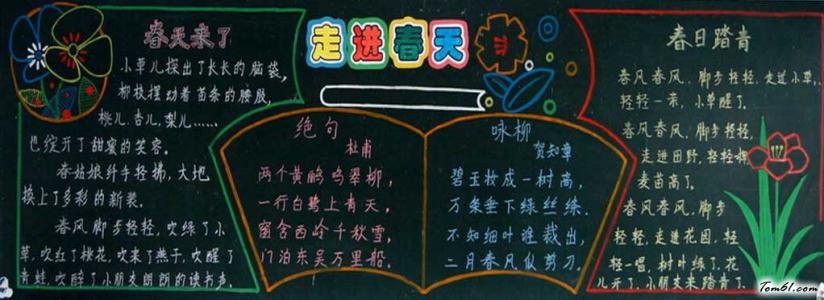 走进春天
春天来了
小草儿探出了长长的脑袋,
柳枝摆动着苗条的腰肢,
桃儿、杏儿、梨儿……
也绽开了甜蜜的笑容。
春姑娘纤手轻拂,大地
换上了多彩的新装。
春风脚步轻轻,吹绿了小
草,吹红了桃花,吹来了燕子,吹醒了
青蛙,吹醉了小朋友朗朗的读书声。
绝句
杜甫
两个黄鹂鸣翠柳,
一行白鹭上青天。
窗含西岭千秋雪,
门泊东吴万里船。
咏柳
贺知章
碧玉妆成一树高,
万条垂下绿丝绦。
不知细叶谁裁出,
二月春风似剪刀。
春日踏青
春风春风,脚步轻轻,走进小草,
轻轻一亲,小草醒了。
春风春风,脚步轻轻,
走进田野,轻轻
麦苗高了。
春风春风,脚步
轻轻,走进花园,轻
轻一唱,树叶绿了,花
儿开了,小朋友来踏青了。
Tom61.com